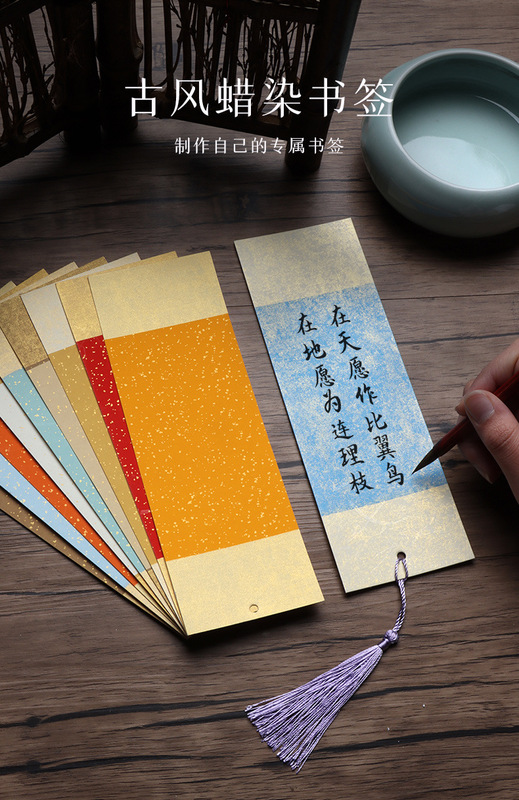 古风蜡染书签
制作自己的专属书签
在天愿作比翼鸟
在地愿为连理枝